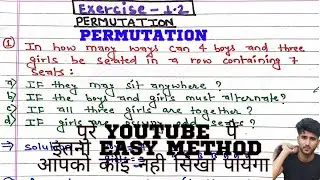 Exercise - 1.2
PERMUTATION
PERMUTATION
① In how many ways can 4 boys and three
girls be seated in a row containing 7
seats:
a) IF they may sit anywhere ?
b) IF the boys and girls must alternate?
c) IF all three girls are together ?
d) IF girls are occupy odd seats ?
पूरे YOUTUBE पे
इतनी EASY METHOD
आपको कोई नही सिखा पायेगा
→ solution